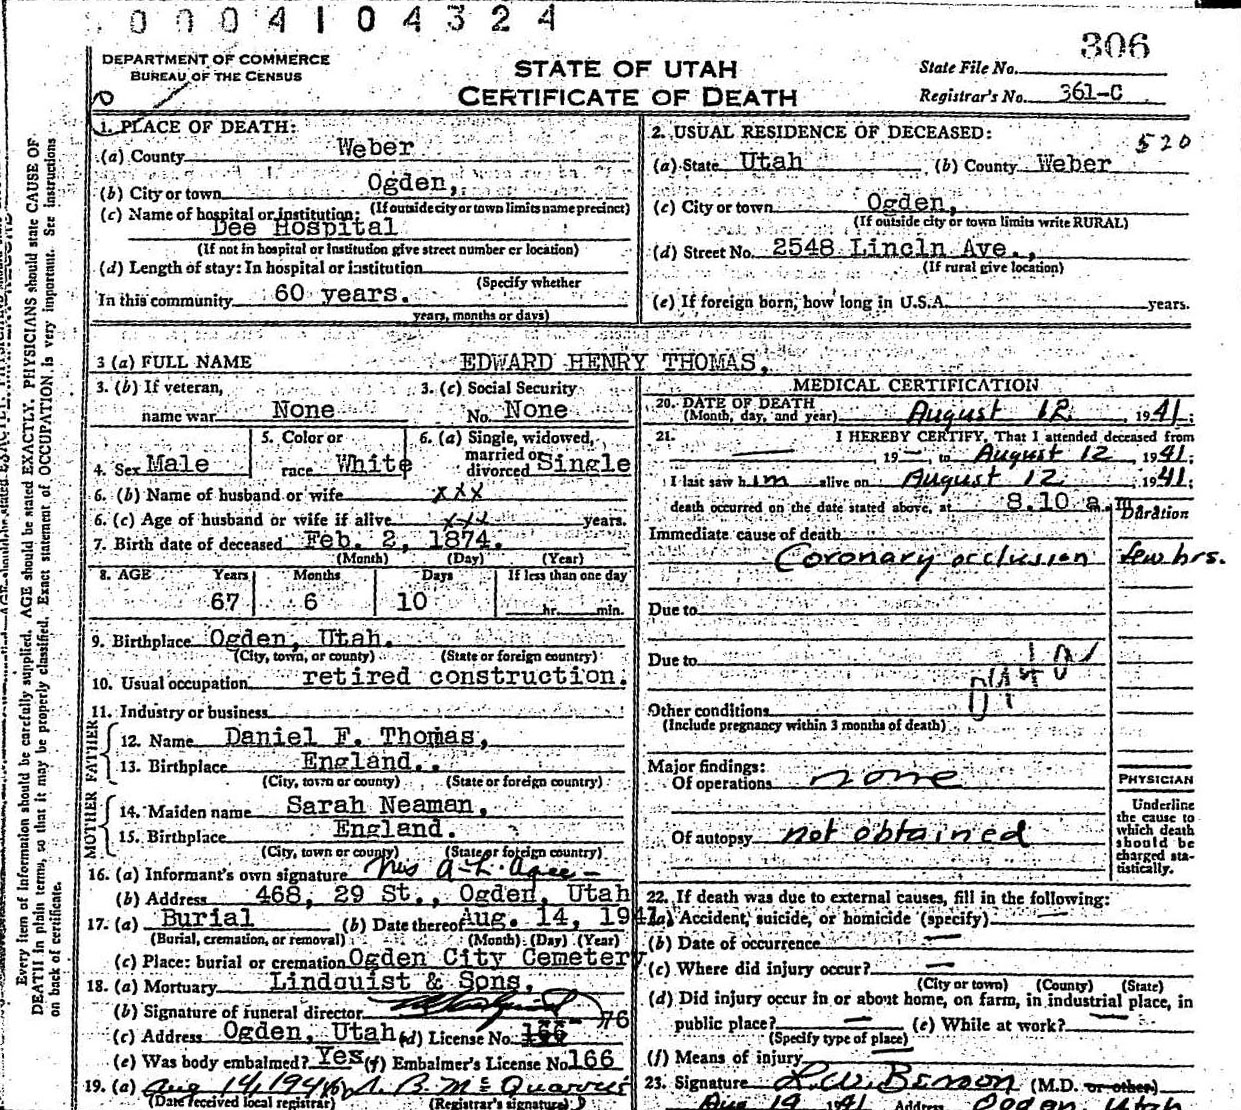 0004104324
306
DEPARTMENT OF COMMERCE
BUREAU OF THE CENSUS
STATE OF UTAH
CERTIFICATE OF DEATH
State File No.
Registrar's No. 361-C
1. PLACE OF DEATH:
(a) County Weber
(b) City or town Ogden,
(If outside city or town limits name precinct)
(c) Name of hospital or institution:
Dee Hospital
(If not in hospital or institution give street number or location)
(d) Length of stay: In hospital or institution
(Specify whether
In this community 60 years.
years, months or days)
2. USUAL RESIDENCE OF DECEASED:
520
(a) State Utah (b) County Weber
(c) City or town Ogden,
(If outside city or town limits write RURAL)
(d) Street No. 2548 Lincln Ave.,
(If rural give location)
(e) If foreign born, how long in U.S.A. years.
3 (a) FULL NAME EDWARD HENRY THOMAS,
3. (b) If veteran,
name war None
3. (c) Social Security
No. None
4. Sex Male
5. Color or
race White
6. (a) Single, widowed,
married or
divorced Single
6. (b) Name of husband or wife xxx
6. (c) Age of husband or wife if alive xxx years.
7. Birth date of deceased Feb. 2, 1874.
(Month) (Day) (Year)
8. AGE Years Months Days If less than one day
67 6 10 hr. min.
9. Birthplace Ogden, Utah.
(City, town, or county) (State or foreign country)
10. Usual occupation retired construction.
11. Industry or business
FATHER
12. Name Daniel F. Thomas,
13. Birthplace England..
(City, town or county) (State or foreign country)
MOTHER
14. Maiden name Sarah Neaman,
15. Birthplace England.
(City, town or county) (State or foreign country)
16. (a) Informant's own signature Mrs A. L. Agee
(b) Address 468, 29 St., Ogden, Utah
17. (a) Burial (b) Date thereof Aug. 14, 1941.
(Burial, cremation, or removal) (Month) (Day) (Year)
(c) Place: burial or cremation Ogden City Cemetery
18. (a) Mortuary Lindquist & Sons,
(b) Signature of funeral director
76
(c) Address Ogden, Utah (d) License No. 166
(e) Was body embalmed? Yes (f) Embalmer's License No. 166
19. (a) Aug 14, 1941 (b)
(Date received local registrar) (Registrar's signature)
MEDICAL CERTIFICATION
20. DATE OF DEATH
(Month, day, and year) August 12 1941;
21. I HEREBY CERTIFY, That I attended deceased from
— 19—, to August 12, 1941;
I last saw him alive on August 12, 1941;
death occurred on the date stated above, at 8.10 a.m.
Duration
Immediate cause of death
Coronary occlusion few hrs.
Due to
Due to
Other conditions
(Include pregnancy within 3 months of death)
Major findings:
Of operations none
Of autopsy not obtained
PHYSICIAN
Underline
the cause to
which death
should be
charged sta-
tistically.
22. If death was due to external causes, fill in the following:
(a) Accident, suicide, or homicide (specify) —
(b) Date of occurrence —
(c) Where did injury occur? —
(City or town) (County) (State)
(d) Did injury occur in or about home, on farm, in industrial place, in
public place? — (e) While at work? —
(Specify type of place)
(f) Means of injury —
23. Signature L. W. Benson (M.D. or other)
Aug 14 1941 Address Ogden Utah
Every item of information should be carefully supplied. AGE should be stated EXACTLY. PHYSICIANS should state CAUSE OF
DEATH in plain terms, so that it may be properly classified. Exact statement of OCCUPATION is very important. See instructions
on back of certificate.